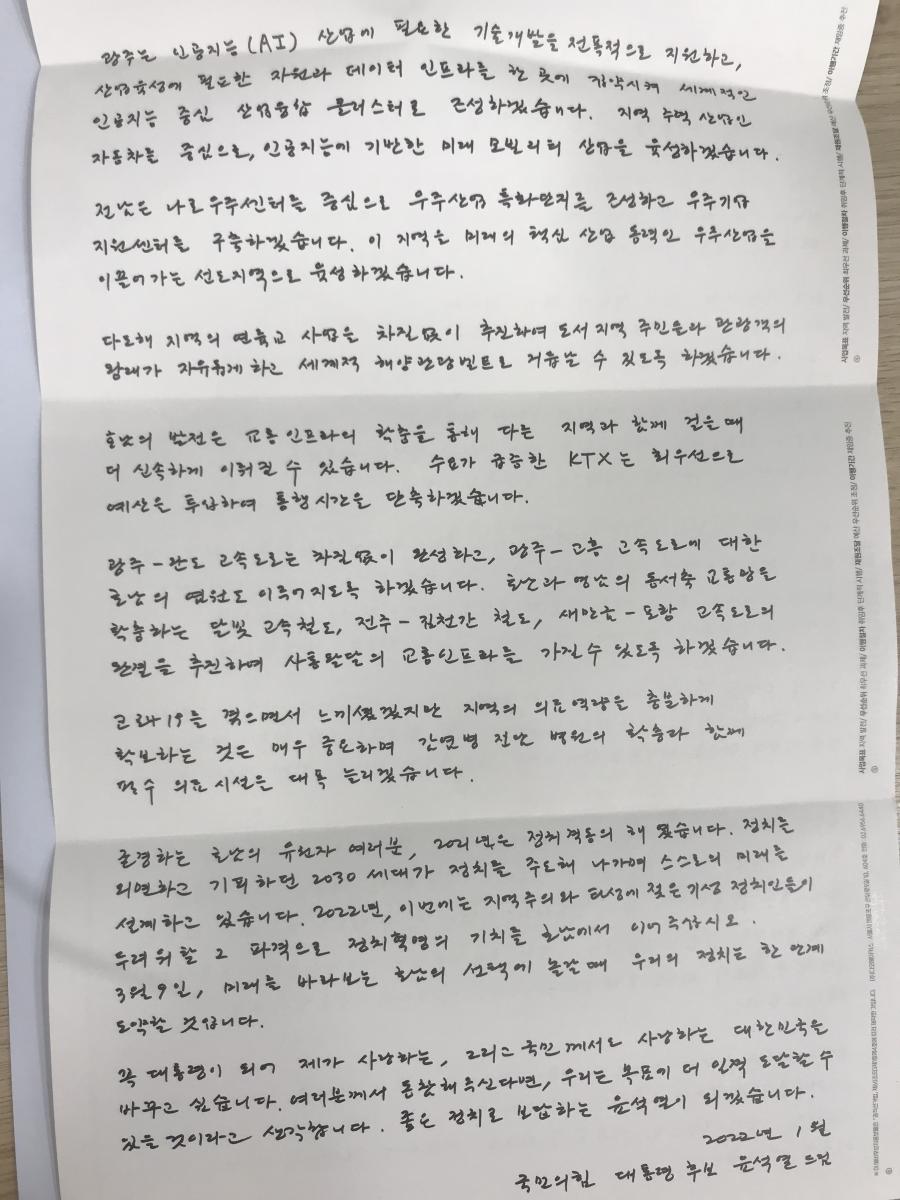 광주는 인공지능(AI) 산업에 필요한 기술개발을 전폭적으로 지원하고,
산업육성에 필요한 자원과 데이터 인프라를 한 곳에 집약시켜 세계적인
인공지능 중심 산업융합 클러스터로 조성하겠습니다. 지역 주력 산업인
자동차를 중심으로, 인공지능에 기반한 미래 모빌리티 산업을 육성하겠습니다.
전남은 나로우주센터를 중심으로 우주산업 특화단지를 조성하고 우주기업
지원센터를 구축하겠습니다. 이 지역을 미래의 핵심 산업 동력인 우주산업을
이끌어가는 선도지역으로 육성하겠습니다.
다도해 지역의 연륙교 사업을 차질없이 추진하여 도서지역 주민들과 관광객의
왕래가 자유롭게 하고 세계적 해양관광벨트로 거듭날 수 있도록 하겠습니다.
호남의 발전은 교통인프라의 확충을 통해 다른 지역과 함께 걸을 때
더 신속하게 이뤄질 수 있습니다. 수요가 급증한 KTX는 최우선으로
예산을 투입하여 통행시간을 단축하겠습니다.
광주-완도 고속도로는 차질없이 완성하고, 광주-고흥 고속도로에 대한
호남의 염원도 이루어지도록 하겠습니다. 호남과 영남의 동서축 교통망을
확충하는 달빛 고속철도, 전주-김천간 철도, 새만금-포항 고속도로의
완결을 추진하여 사통팔달의 교통인프라를 가질 수 있도록 하겠습니다.
코로나19를 겪으면서 느끼셨겠지만 지역의 의료역량을 충분하게
확보하는 것은 매우 중요하며 감염병 전담 병원의 확충과 함께
필수 의료시설은 대폭 늘리겠습니다.
존경하는 호남의 유권자 여러분, 2021년은 정치격동의 해였습니다. 정치를
외면하고 기피하던 2030 세대가 정치를 주도해 나가며 스스로의 미래를
설계하고 있습니다. 2022년, 이번에는 지역주의와 타성에 젖은 기성 정치인들이
두려워할 그 파격으로 정치혁명의 기치를 호남에서 이어주십시오.
3월 9일, 미래를 바라보는 호남의 선택에 놀랄 때 우리의 정치는 한 단계
도약할 것입니다.
꼭 대통령이 되어 제가 사랑하는, 그리고 국민께서도 사랑하는 대한민국을
바꾸고 싶습니다. 여러분께서 동참해주신다면, 우리는 목표에 더 일찍 도달할 수
있을 것이라고 생각합니다. 좋은 정치로 보답하는 윤석열이 되겠습니다.
2022년 1월
국민의힘 대통령 후보 윤석열 드림
사업목표 지역 발전/ 우선순위 최우선 과제/ 이행절차 취임후 단계적 시행/ 재원조달 예산 우선순위 조정/ 이행기간 재임중 추진
사업목표 지역 발전/ 우선순위 최우선 과제/ 이행절차 취임후 단계적 시행/ 재원조달 예산 우선순위 조정/ 이행기간 재임중 추진